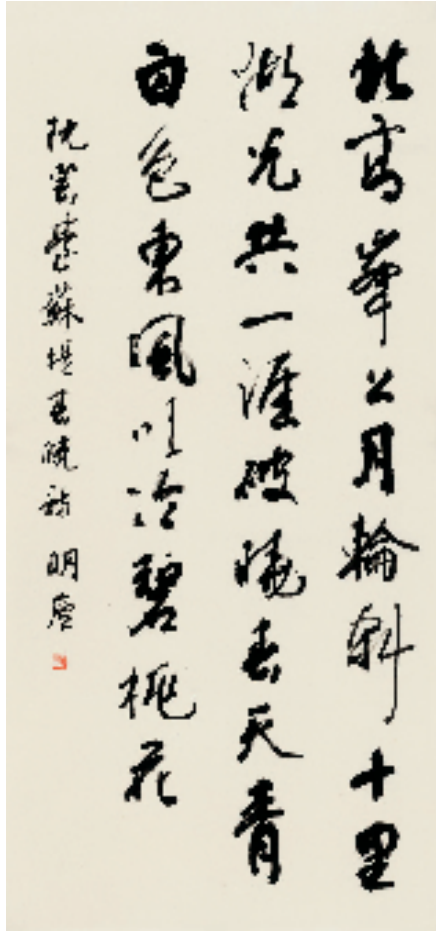 北高峯上月輪斜十里
湖光共一涯破曉春天青
白色東風吹冷碧桃花
阮芸臺蘇堤春曉詩 明